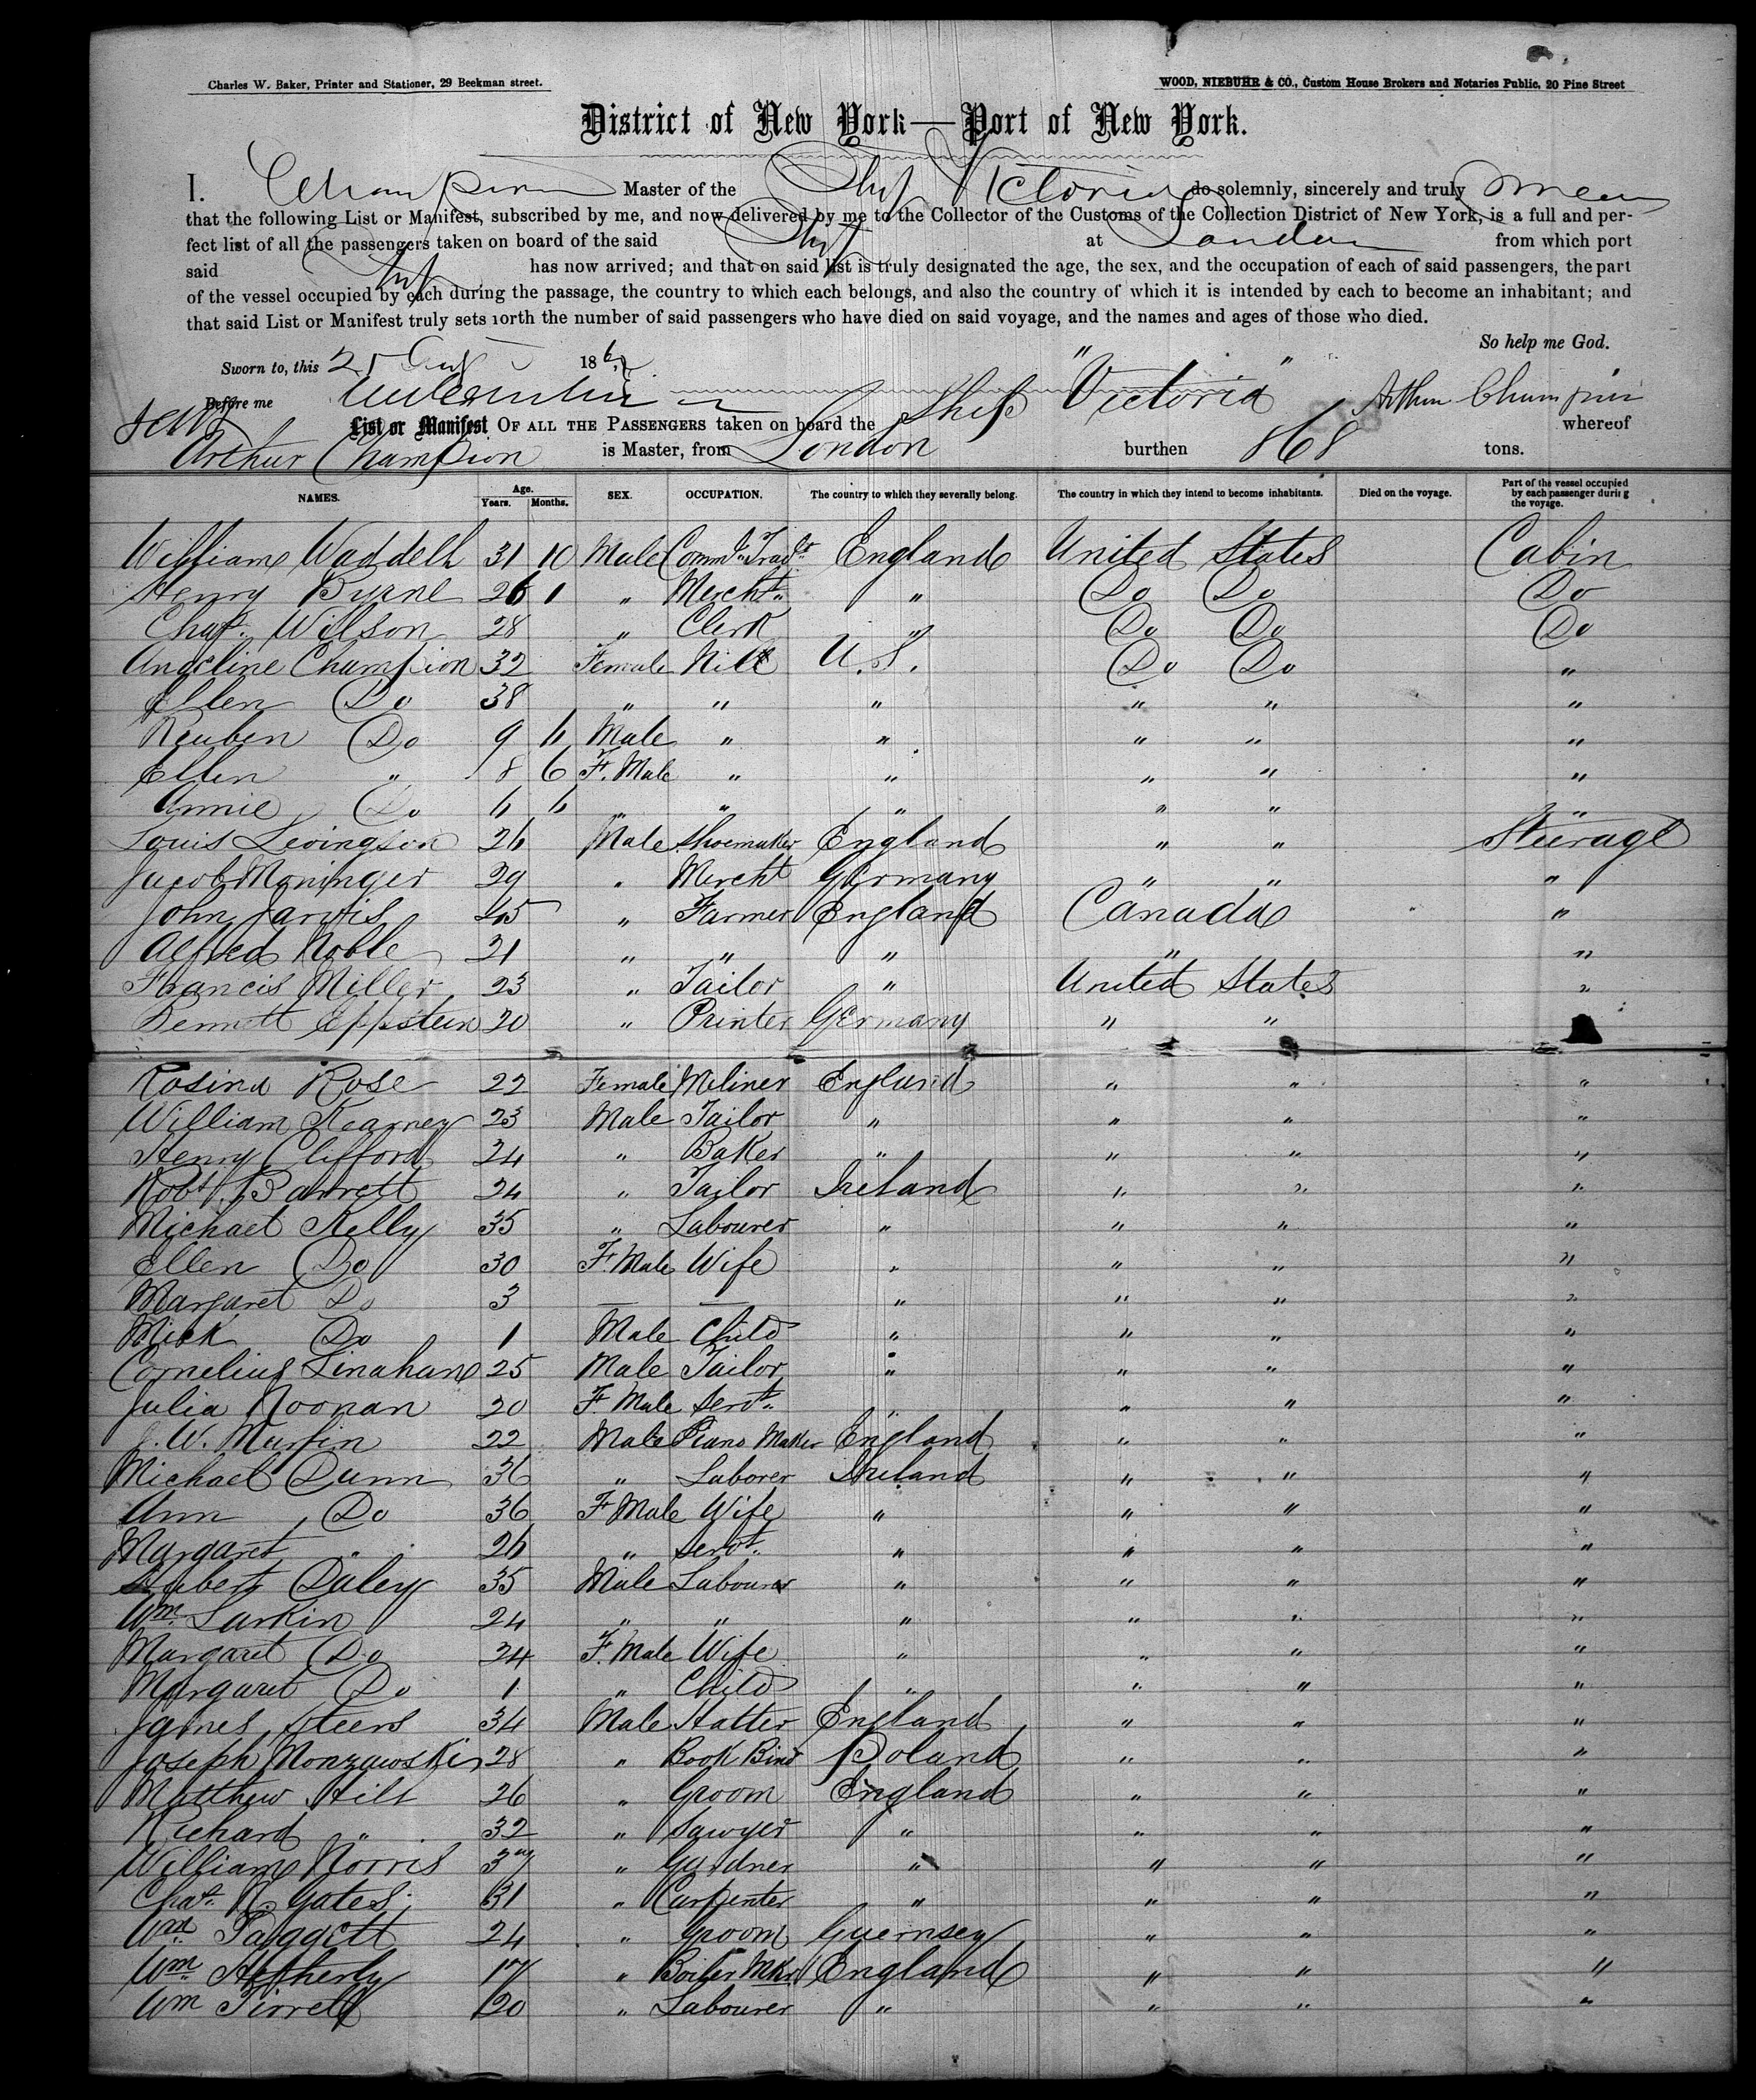 Charles W. Baker, Printer and Stationer, 29 Beekman street.
WOOD, NIEBUHR & CO., Custom House Brokers and Notaries Public, 20 Pine Street
District of New York—Port of New York.
I. Champion Master of the Ship Victoria do solemnly, sincerely and truly swear
that the following List or Manifest, subscribed by me, and now delivered by me to the Collector of the Customs of the Collection District of New York, is a full and per-
fect list of all the passengers taken on board of the said Ship at London from which port
said Ship has now arrived; and that on said list is truly designated the age, the sex, and the occupation of each of said passengers, the part
of the vessel occupied by each during the passage, the country to which each belongs, and also the country of which it is intended by each to become an inhabitant; and
that said List or Manifest truly sets forth the number of said passengers who have died on said voyage, and the names and ages of those who died.
So help me God.
Sworn to, this 25 Aug 186
Before me
Arthur Champion
List or Manifest OF ALL THE PASSENGERS taken on board the Ship "Victoria" whereof
Arthur Champion is Master, from London burthen 868 tons.
NAMES. Age. Years. Months. SEX. OCCUPATION. The country to which they severally belong. The country in which they intend to become inhabitants. Died on the voyage. Part of the vessel occupied by each passenger during the voyage.
William Waddell 31 10 Male Comml. Travlr England United States Cabin
Henry Byrne 26 1 " Mercht. " Do Do Do
Chas. Willson 28 " Clerk " Do Do Do
Angeline Champion 32 Female Nill U.S. Do Do "
Ellen Do 38 " " " " " "
Reuben Do 9 6 Male " " " " "
Ellen " 8 6 F. Male " " " " "
Annie Do 6 6 " " " " " "
Louis Levingson 26 Male Shoemaker England " " Steerage
Jacob Moninger 29 " Mercht Germany " " "
John Jarvis 45 " Farmer England Canada "
Alfred Noble 21 " " " " "
Francis Miller 23 " Tailor " United States "
Bennett Eppstein 20 " Printer Germany " "
Rosina Rose 22 Female Meliner England " " "
William Kearney 23 Male Tailor " " " "
Henry Clifford 24 " Baker " " " "
Robt. Barrett 24 " Tailor Ireland " " "
Michael Kelly 35 " Labourer " " " "
Ellen Do 30 F. Male Wife " " " "
Margaret Do 3 — — " " " "
Mick Do 1 Male Child " " " "
Cornelius Linahan 25 Male Tailor " " " "
Julia Noonan 20 F Male Servt. " " " "
J. W. Marfin 22 Male Piano Maker England " " "
Michael Dunn 36 " Laborer Ireland " " "
Ann Do 36 F Male Wife " " " "
Margaret " 26 " Servt. " " " "
Hubert Daley 35 Male Labourer " " " "
Wm. Larkin 24 " " " " " "
Margaret Do 24 F. Male Wife " " " "
Margaret Do 1 " Child " " " "
James Steers 34 Male Hatter England " " "
Joseph Monzawski 28 " Book Bind Poland " " "
Matthew Hill 26 " Groom England " " "
Richard " 32 " Sawyer " " " "
William Norris 37 " Gardner " " " "
Chas. R. Yates 31 " Carpenter " " " "
Wm. Paggett 24 " Groom Guernsey " " "
Wm. Hetherly 17 " Boiler Mkr. England " " "
Wm Tirrell 20 " Labourer " " " "